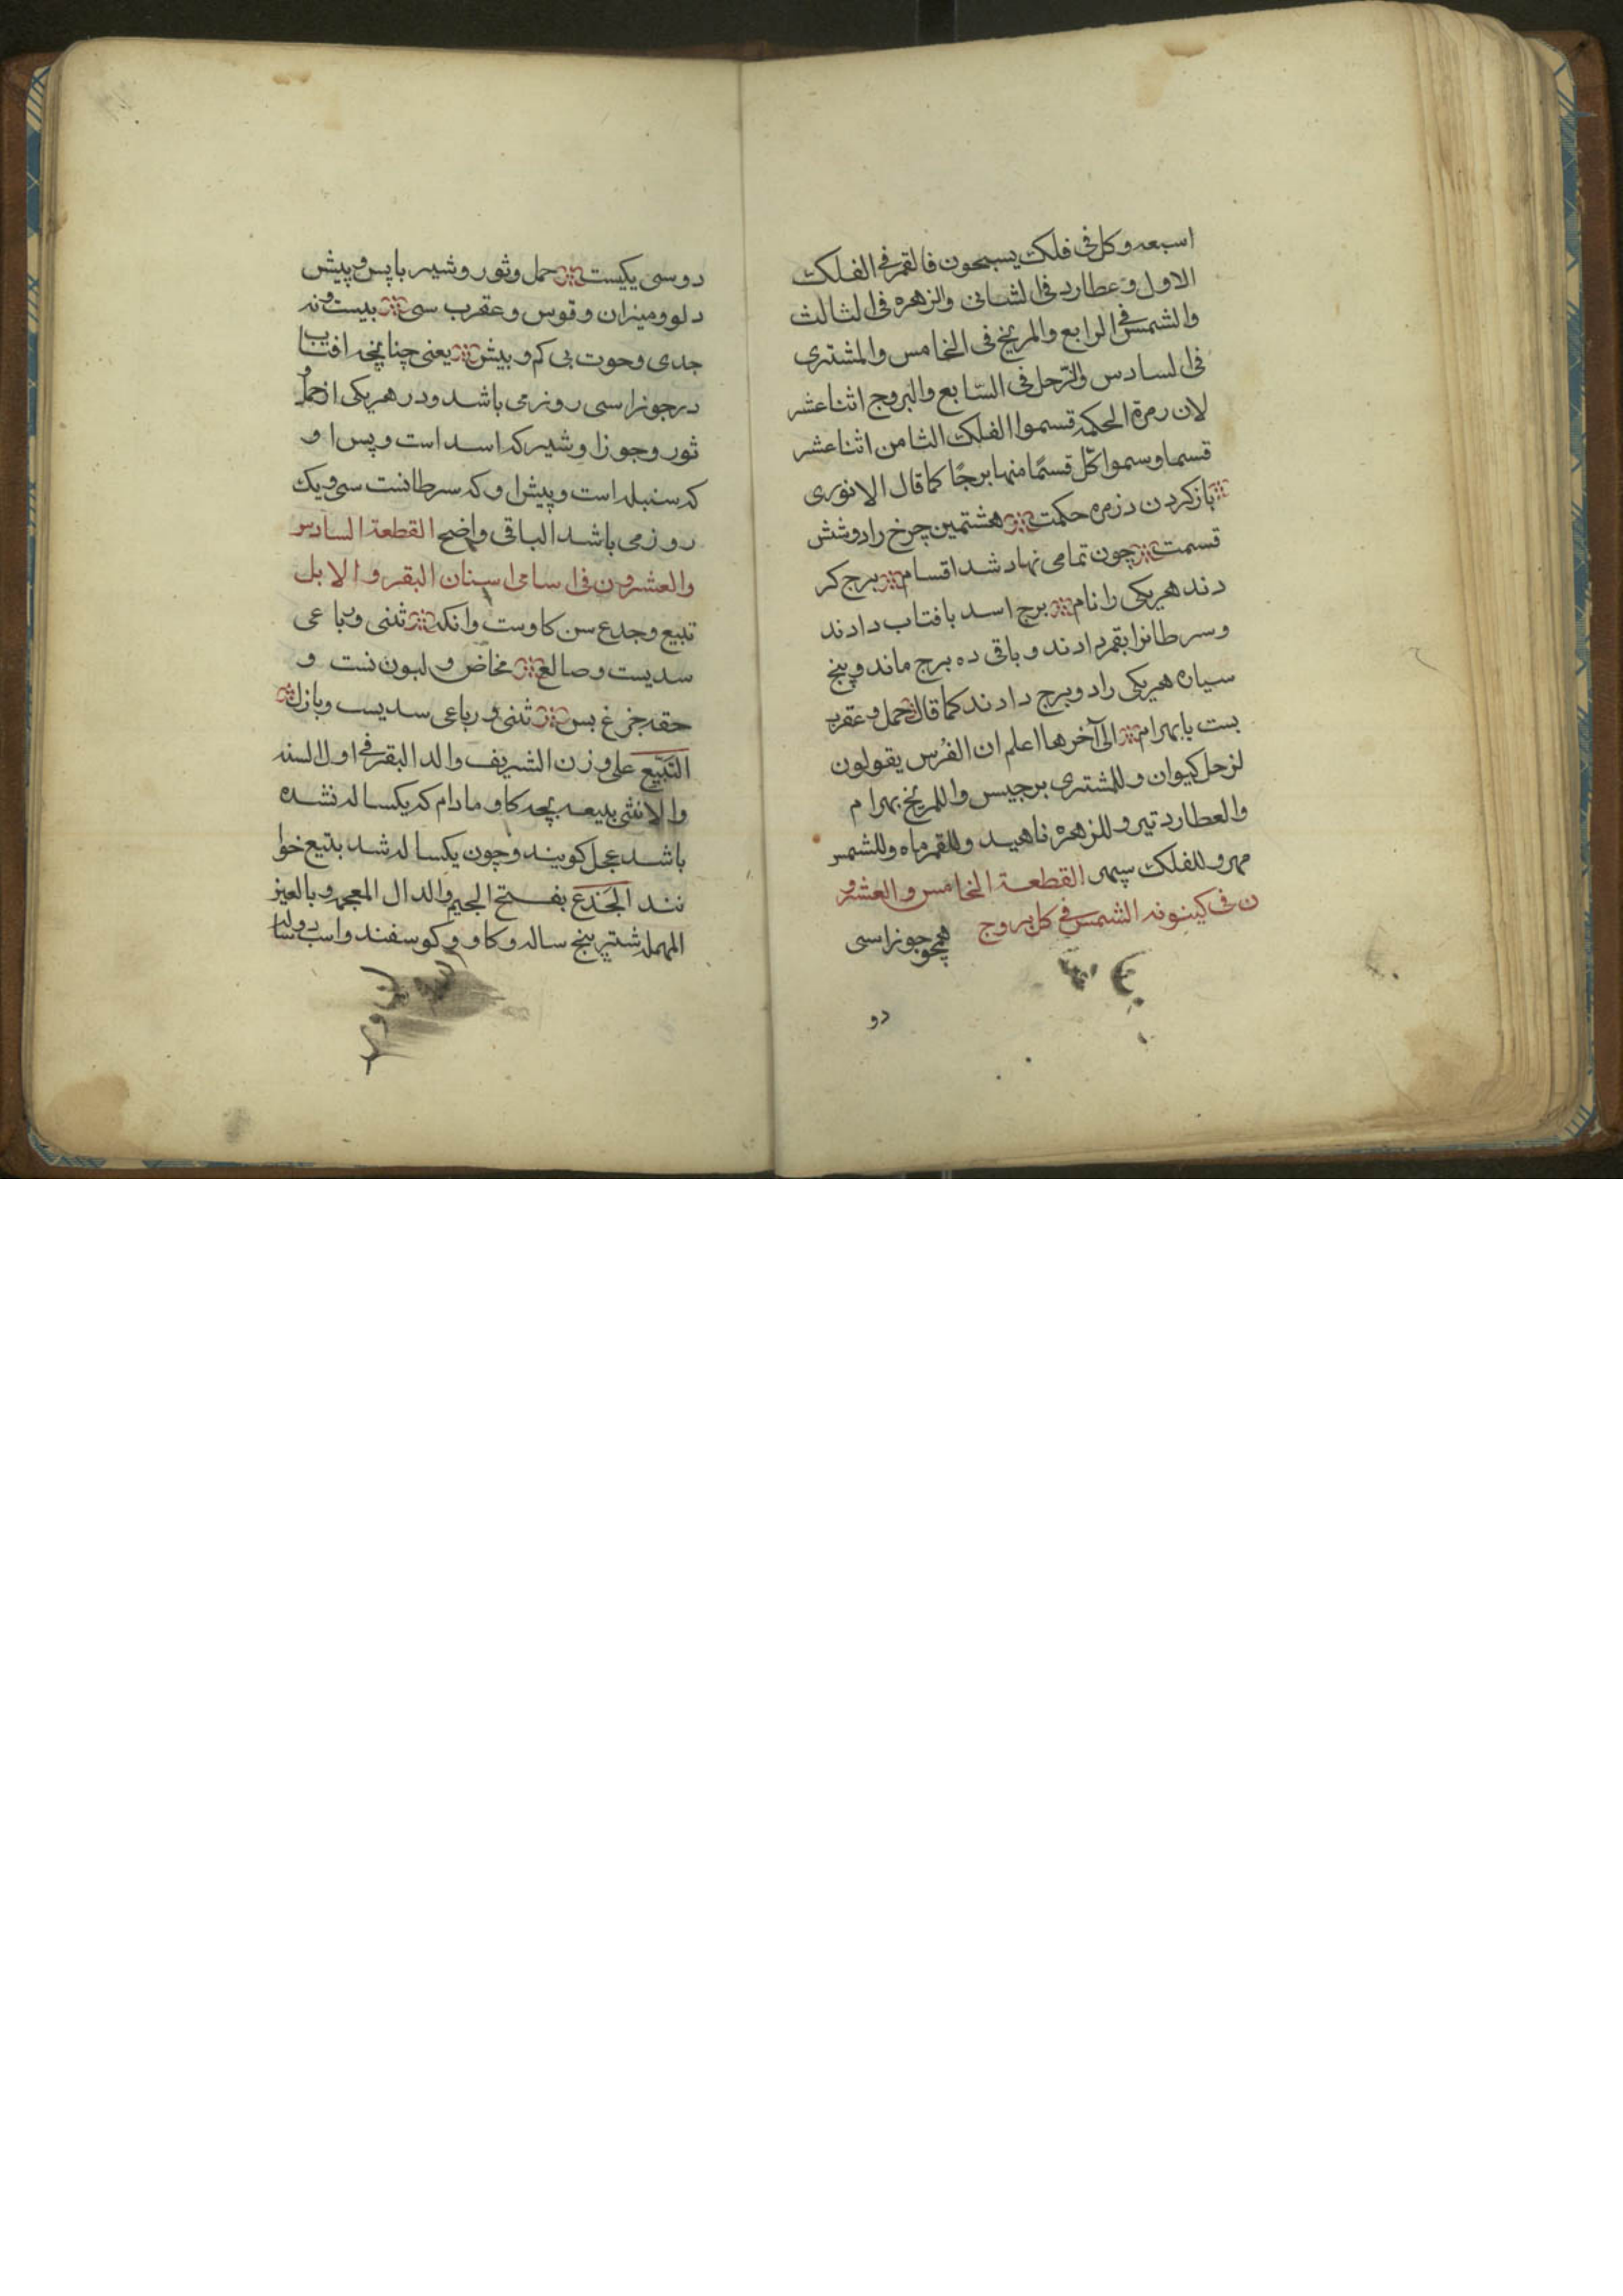 اسبعه وكل فى فلك يسبحون فالقمر فى الفلك
الاول وعطارد فى الثانى والزهره فى الثالث
والشمس فى الرابع والمريخ فى الخامس والمشترى
فى السادس والزحل فى السابع والبروج اثنا عشر
لان رمرة الحكمه قسموا الفلك الثامن اثنا عشر
قسما وسموا كل قسمًا منها برجًا كما قال الانورى
باز كردن دزمره حكمت هشتمين چرخ را دوشش
قسمت چون تمامى نهاد شد اقسام برج كر
دند هريكى را نام برج اسد بافتاب دادند
وسرطانرا بقمر دادند وباقى ده برج ماند وپنج
سياره هريكى را دو برج دادند كما قال حمل وعقرب
بست با بهرام الى آخرها اعلم ان الفُرس يقولون
لزحل كيوان وللمشترى برجيس واللمريخ بهرام
والعطارد تير وللزهره ناهيد وللقمر ماه وللشمس
مهر وللفلك سپهر القطعة الخامس والعشرو
ن فى كينونه الشمس فى كل بروج همچو جوزا سى
دو
دو سى يكيست حمل وثور وشير با پس وپيش
دلو وميزان وقوس وعقرب سى بيست ونه
جدى وحوت بى كم وبيش يعنى چنانچه افتاب
در جوزا سى روز مى باشد ودر هريكى از حمل و
ثور وجوزا وشير كه اسد است وپس او
كه سنبله است وپيش او كه سرطانست سى ويك
روز مى باشد الباقى واضح القطعة السادس
والعشرون فى اسامى اسنان البقر والابل
تبيع وجدع سن كاوست وانكه ثنى ورباعى
سديست وصالغ مخاض ولبون نست و
حقه جزغ بس ثنى ورباعى سديس وبازل
التَّبيع على وزن الشريف والد البقر فى اول السنه
والانثى بديعه بچه كاو مادام كه يكساله نشده
باشد عجل كويند وچون يكساله شد بتيع خوا
نند الجَذَع بفتح الجيم والدال المعجمه وبالعين
المهمله شتر پنج ساله وكاو وكوسفند واسب دوساله